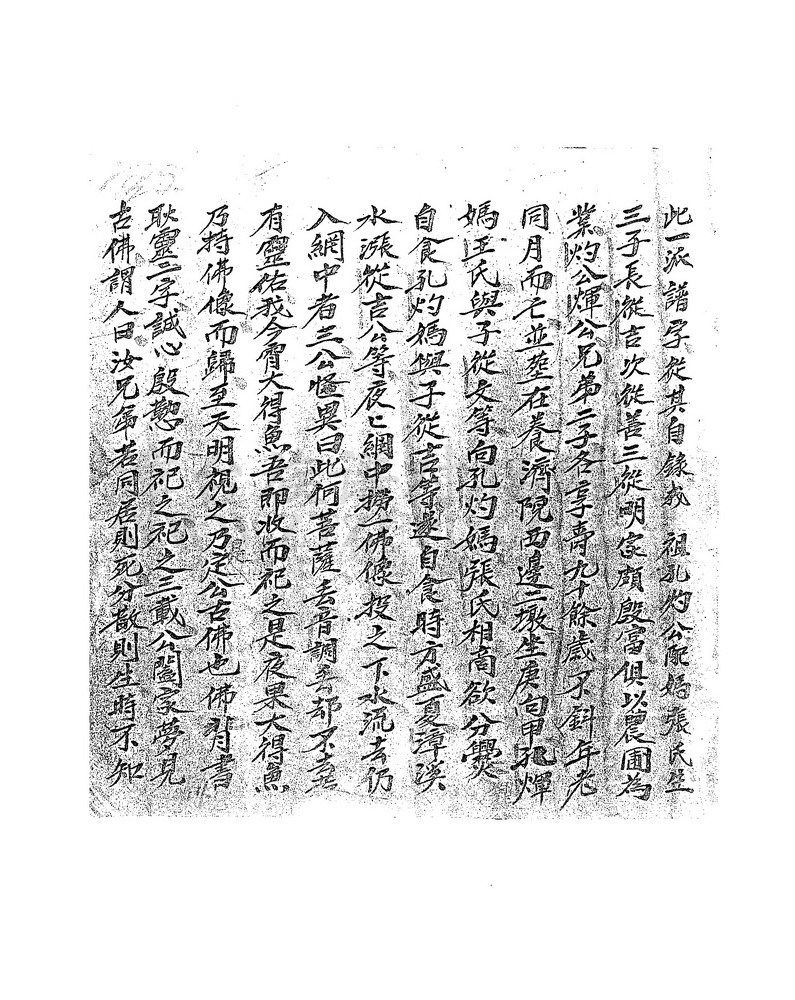 此一派譜孕從其自錄哉 祖孔灼公配媽張氏生
三子長從吉次從善三從明家頗殷富俱以農圃為
業灼公煇公兄弟二子各享壽九十餘歲不斜年老
同月而亡並塟在養濟院西邊二墩坐庚向甲孔煇
媽王氏與子從文等向孔灼媽張氏相商欲分爨
自食孔灼媽與子從吉等遂自食時方盛夏漳溪
水漲從吉公等夜亡網中撈一佛像投之下水流去仍
入網中者三公怪異曰此何菩薩去音調丟却不去若
有靈佑我今宵大得魚吾即收而祀之是夜果大得魚
乃持佛像而歸至天明視之乃定公古佛也佛背書
耿靈二字誠心殷懃而祀之祀之三載公闔家夢見
古佛謂人曰汝兄弟若同居則死分散則生時不知